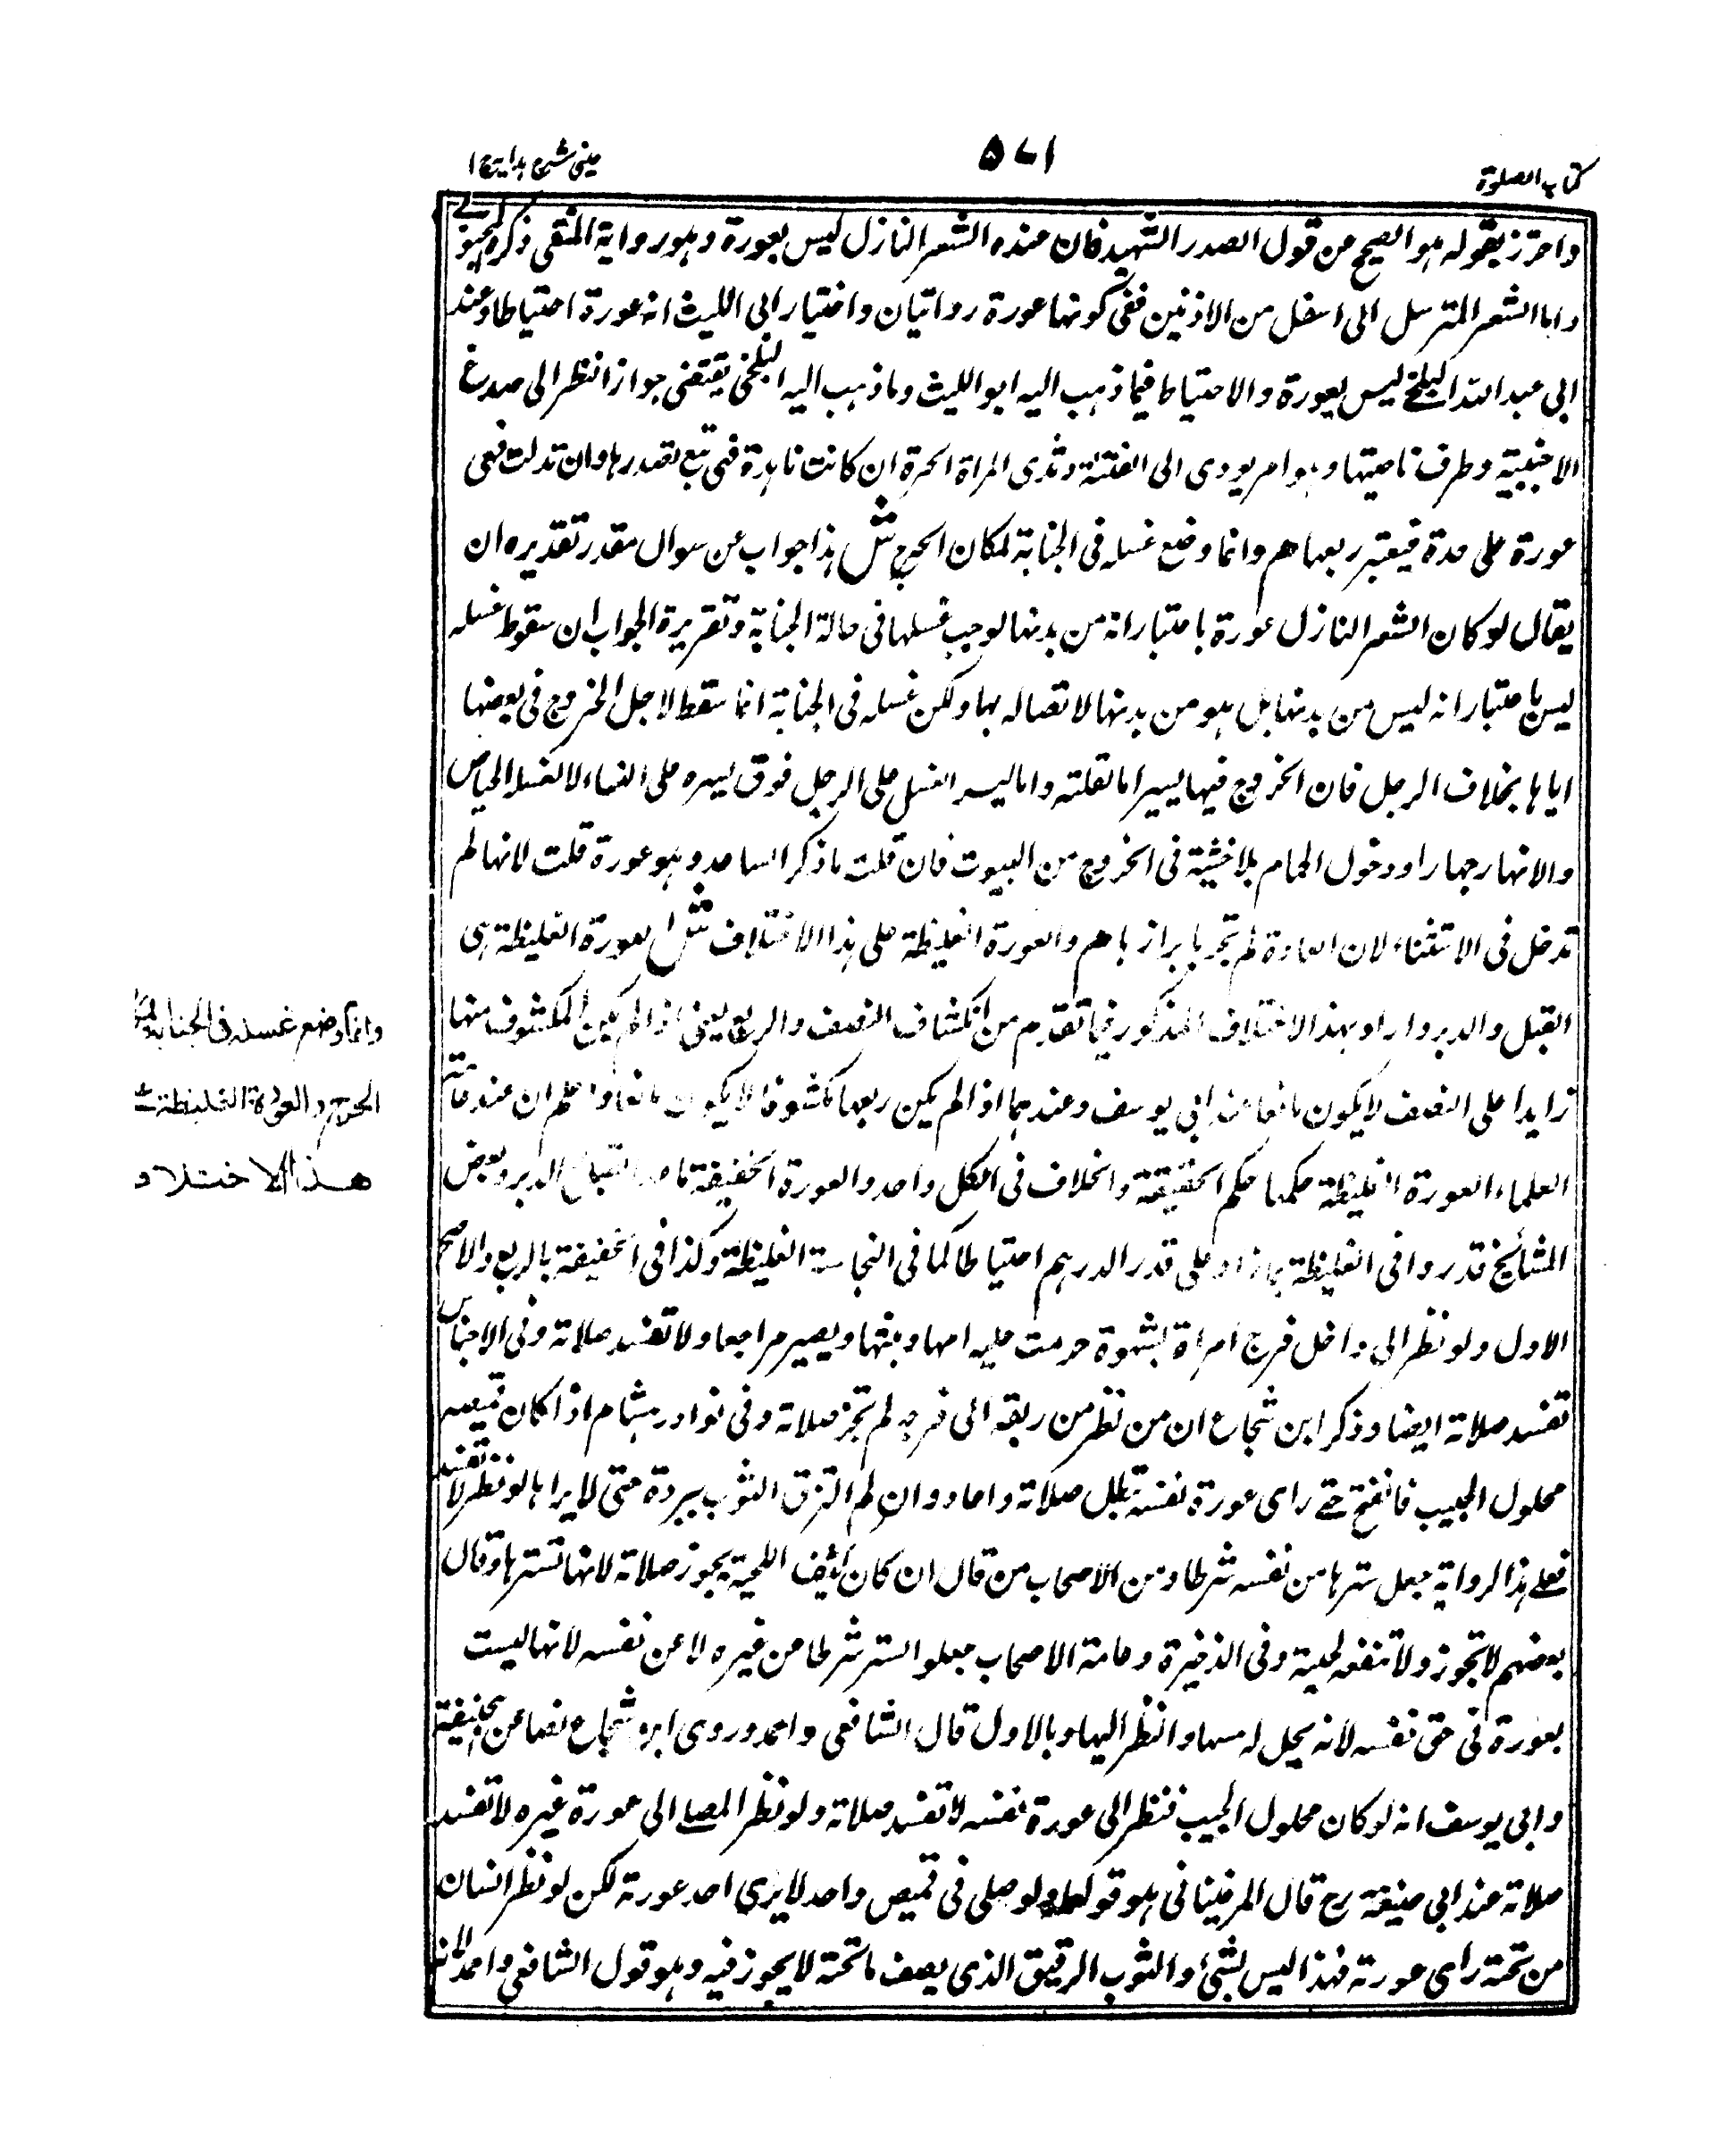 كتاب الصلوة
٥٧١
عينى شرح هدايه ج ١
واحترز بقوله هو الصحيح من قول الصدر الشهيد فان عنده الشعر النازل ليس بعورة وهو رواية المنتقى ذكره
واما الشعر المسترسل الى اسفل من الاذنين ففى كونها عورة روايتان واختيار ابى الليث انه عورة احتياطا وعند
ابى عبد الله البلخى ليس بعورة والاحتياط فيما ذهب اليه ابو الليث وما ذهب اليه البلخى يقتضى جواز النظر الى صدغ
الاجنبية وطرف ناصيتها وهو امر يودى الى الفتنة وثدى المراة الحرة ان كانت ناهدة فهى تبع لصدرها وان تدلت فهى
عورة على حدة فيعتبر ربعها هم وانما وضع غسله فى الجنابة لمكان الحرج ش هذا جواب عن سوال مقدر تقديره ان
يقال لو كان الشعر النازل عورة باعتبار انه من بدنها لوجب غسلها فى حالة الجنابة وتقريرة الجواب ان سقوط غسله
ليس باعتبار انه ليس من بدنها بل هو من بدنها لاتصاله بها ولكن غسله فى الجنابة انما سقط لاجل الخروج فى بعضها
اياها بخلاف الرجل فان الخروج فيها يسير اما لقلته واما ليسر الغسل على الرجل فوق يسره على النساء لانغسال الحياض
والانهار جهارا ودخول الحمام بلا خشية فى الخروج من البيوت فان قلت ما ذكر الساعد وهو عورة قلت لانها لم
تدخل فى الاستثناء لان العادة لم تجر بابرازها هم والعورة الغليظة على هذا الاختلاف ش العورة الغليظة هى
القبل والدبر واراد بهذا الاختلاف المذكور فيما تقدم من انكشاف النصف والربع يعنى اذا لم يكن المكشوف منها
زايدا على النصف لا يكون مانعا عن ابى يوسف وعندهما اذا لم يكن ربعها مكشوفا لا يكون مانعا واعلم ان عند عامة
العلماء العورة الغليظة حكمها حكم الخفيفة والخلاف فى الكل واحد والعورة الخفيفة ما عدا القبل والدبر وبعض
المشائخ قدروا فى الغليظة بما زاد على قدر الدرهم احتياطا كما فى النجاسة الغليظة وكذا فى الخفيفة بالربع والاصح
الاول ولو نظر الى داخل فرج امراة بشهوة حرمت عليه امها وبنتها ويصير مراجعا ولا تفسد صلاته وفى الاجناس
تفسد صلاته ايضا وذكر ابن شجاع ان من نظر من زيقه الى فرجه لم تجز صلاته وفى نوادر هشام اذا كان قميصه
محلول الجيب فانفتح حتى راى عورة نفسه تبطل صلاته واعاد وان لم التزق الثوب ببردة حتى لا يراها لو نظر لا تفسد
فعلى هذا الرواية جعل سترها من نفسه شرطا ومن الاصحاب من قال ان كان كثيف اللحية يجوز صلاته لانها تسترها وقال
بعضهم لا تجوز ولا تنفعه لحيته وفى الذخيرة وعامة الاصحاب جعلوا الستر شرطا من غيره لا عن نفسه لانها ليست
بعورة فى حق نفسه لانه يحل له مسها والنظر اليها وبالاول قال الشافعى واحمد وروى ابن شجاع نصا عن ابيحنيفة
وابى يوسف انه لو كان محلول الجيب فنظر الى عورة نفسه لا تفسد صلاته ولو نظر المصلى الى عورة غيره لا تفسد
صلاته عند ابى حنيفة رح قال المرغينانى هو قولهما ولو صلى فى قميص واحد لا يرى احد عورته لكن لو نظر انسان
من تحته راى عورته فهذا ليس بشئ والثوب الرقيق الذى يصف ما تحته لا يجوز فيه وهو قول الشافعى واحمد لانه
وانما وضع غسله فى الجنابة
الحرج والعورة الغليظة
هذا الاختلاف